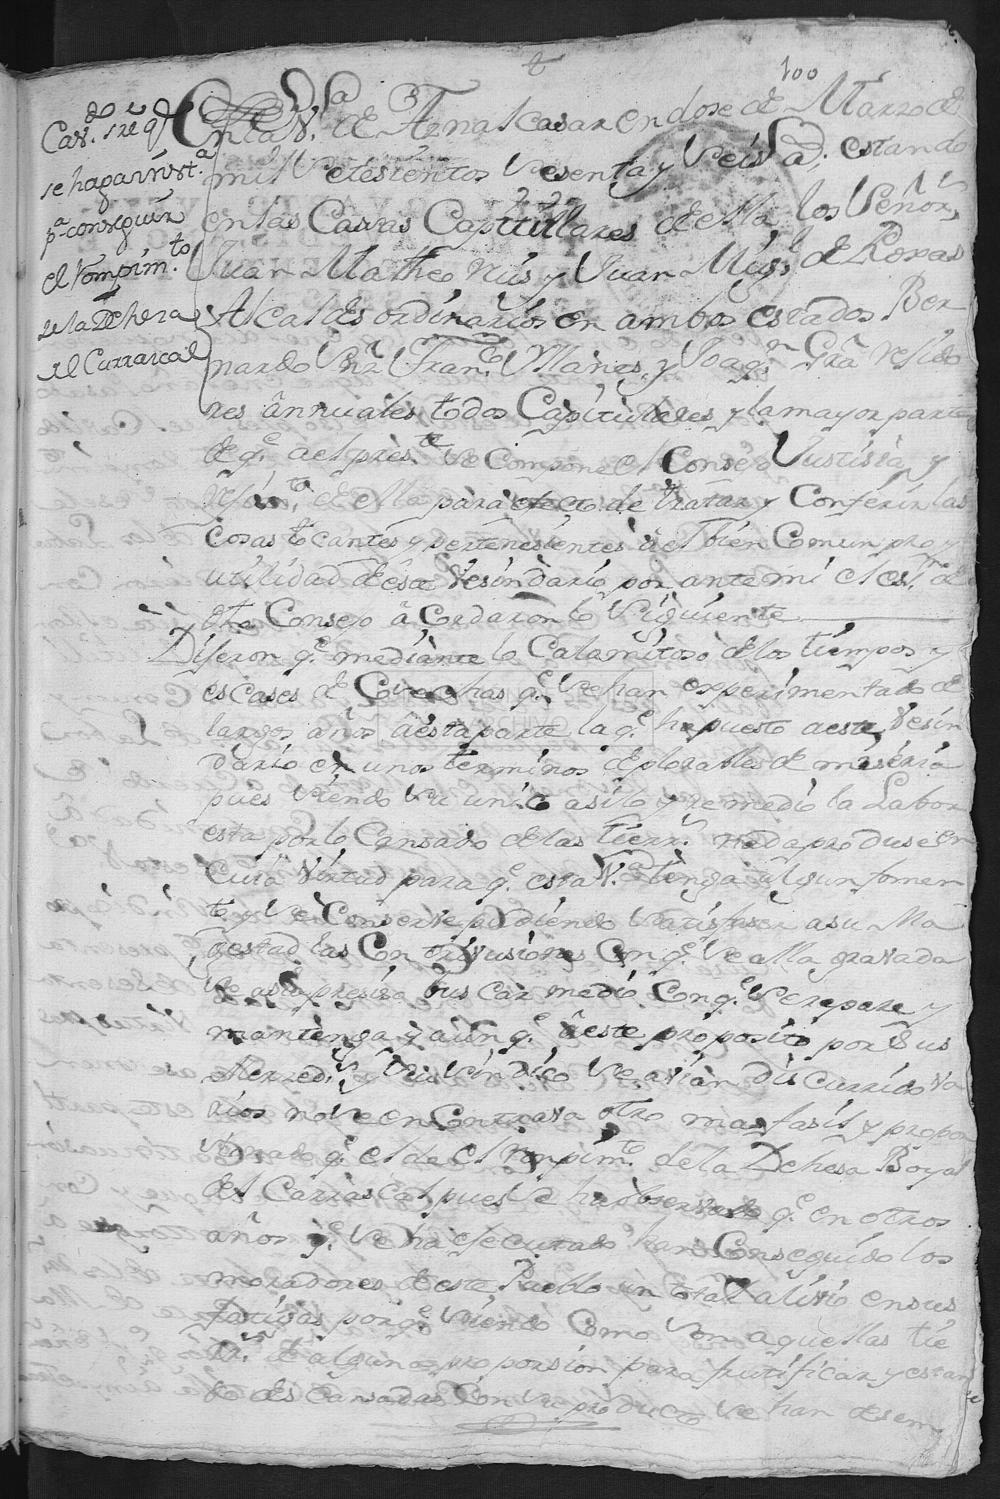 100
Cav.do sre q.e
se haga inst.a
p.a conseguir
el Rompim.to
de la Dehesa
del Carrascal
En la V.a de Aznalcasar en dose de Marzo de
mil setesientos sesenta y seis a.s estando
en las Casas Capitulares de ella los Señor.s
Juan Matheo Ruis y Juan Mig.l de Roxas
Alcaldes ordinarios en ambos estados Ber
nardo Franc.o y Joaq.n Grã Resido
res ânnuales todos Capitulares y la mayor parte
de q.e a el pres.te se Compone el Consejo Justisia y
Resim.to de ella para efecto de tratar y Conferir las
Cosas tocantes y pertenesientes a el bien Comun pro y
utilidad de este Vesindario por ante mi el es.no de
dho Consejo âCordaron lo siguiente
Dijeron q.e mediante lo Calamitoso de los tiempos y
escases de Cosechas q.e se han experimentado de
largos años a esta parte la q.e ha puesto a este Vesin
dario en unos terminos deplorables de miseria
pues siendo su unico asilo y remedio la Labor
esta por lo Cansado de las tierr.s nada produse en
Cuia virtud para q.e esta V.a tenga algun fomen
to y se Conserve pudiendo satisfaser a su Ma
gestad las Contrivusiones Con q.e se alla gravada
se asia presiso buscar medio Con q.e se repare y
mantenga y aunq.e â este proposito por sus
Merzed.s y su Sindico se avian discurrido va
rios no se encontrava otro mas fasil y propor
sionado q.e el de el Rompim.to de la Dehesa Boyal
del Carrascal pues se ha observado q.e en otros
años q.e se ha executado han Conseguido los
moradores de este Pueblo un total alivio en sus
fatigas porq.e siendo Como son aquellas tie
rr.s de alguna proporsion para frutificar y estan
do descansadas Con su producto se han desem